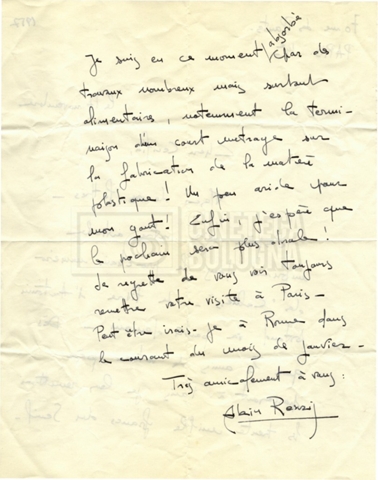 absorbé
Je suis en ce moment par des
travaux nombreux mais surtout
alimentaires, notamment la termi-
naison d'un court métrage sur
la fabrication de la matière
plastique ! Un peu aride pour
mon goût. Enfin j'espère que
le prochain sera plus drôle !
Je regrette de vous voir toujours
remettre votre visite à Paris -
Peut être irais-je à Rome dans
le courant du mois de janvier -
Très amicalement à vous :
Alain Resnais
CINETECA
BOLOGNA